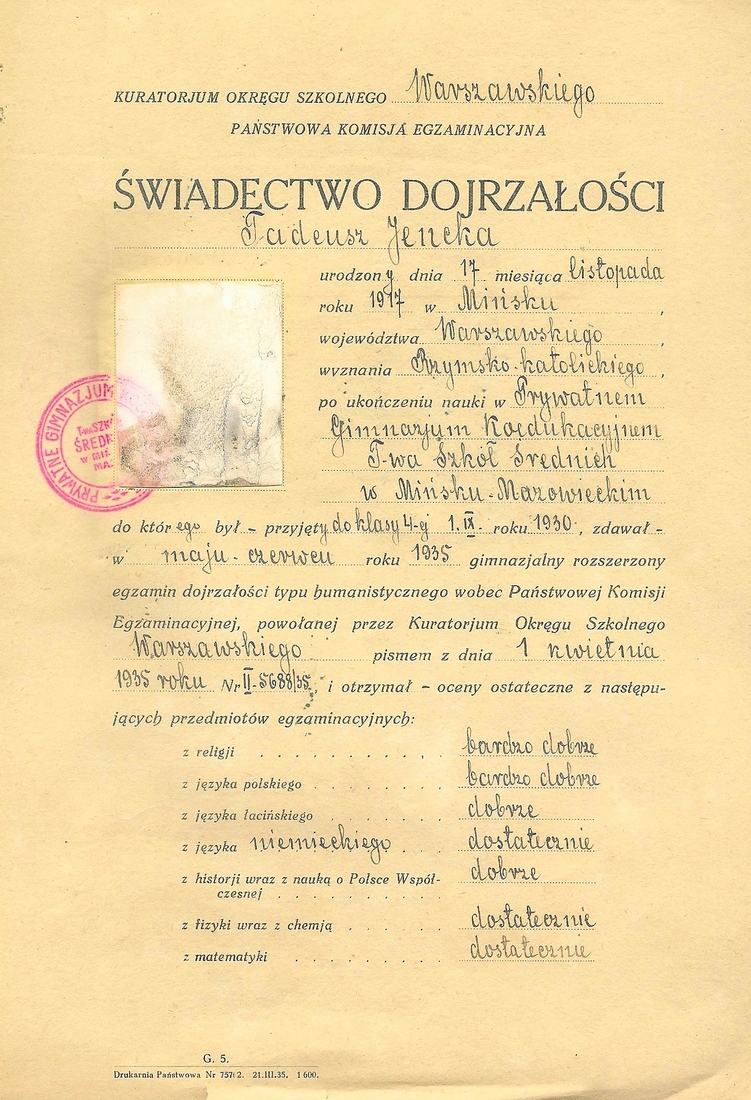 KURATORJUM OKRĘGU SZKOLNEGO Warszawskiego
PAŃSTWOWA KOMISJA EGZAMINACYJNA
ŚWIADECTWO DOJRZAŁOŚCI
Tadeusz Jencka
urodzony dnia 17 miesiąca listopada
roku 1917 w Mińsku,
województwa Warszawskiego,
wyznania Rzymsko-katolickiego,
po ukończeniu nauki w Prywatnem
Gimnazjum Koedukacyjnem
T-wa Szkół Średnich
w Mińsku-Mazowieckim
PRYWATNE GIMNAZJUM
T-wa SZK
ŚREDN
w MIŃ
MAZ
do którego był - przyjęty do klasy 4-ej 1.IX. roku 1930, zdawał -
w maju-czerwcu roku 1935 gimnazjalny rozszerzony
egzamin dojrzałości typu humanistycznego wobec Państwowej Komisji
Egzaminacyjnej, powołanej przez Kuratorjum Okręgu Szkolnego
Warszawskiego pismem z dnia 1 kwietnia
1935 roku Nr II-5688/35, i otrzymał - oceny ostateczne z następu-
jących przedmiotów egzaminacyjnych:
z religji . . . . . . . . . . bardzo dobrze
z języka polskiego . . . . . . . bardzo dobrze
z języka łacińskiego . . . . . . dobrze
z języka niemieckiego . . dostatecznie
z historji wraz z nauką o Polsce Współ-
czesnej . . . . . . . . . . dobrze
z fizyki wraz z chemją . . . . . . dostatecznie
z matematyki . . . . . . . . dostatecznie
G. 5.
Drukarnia Państwowa Nr 75762. 21.III.35. 1600.